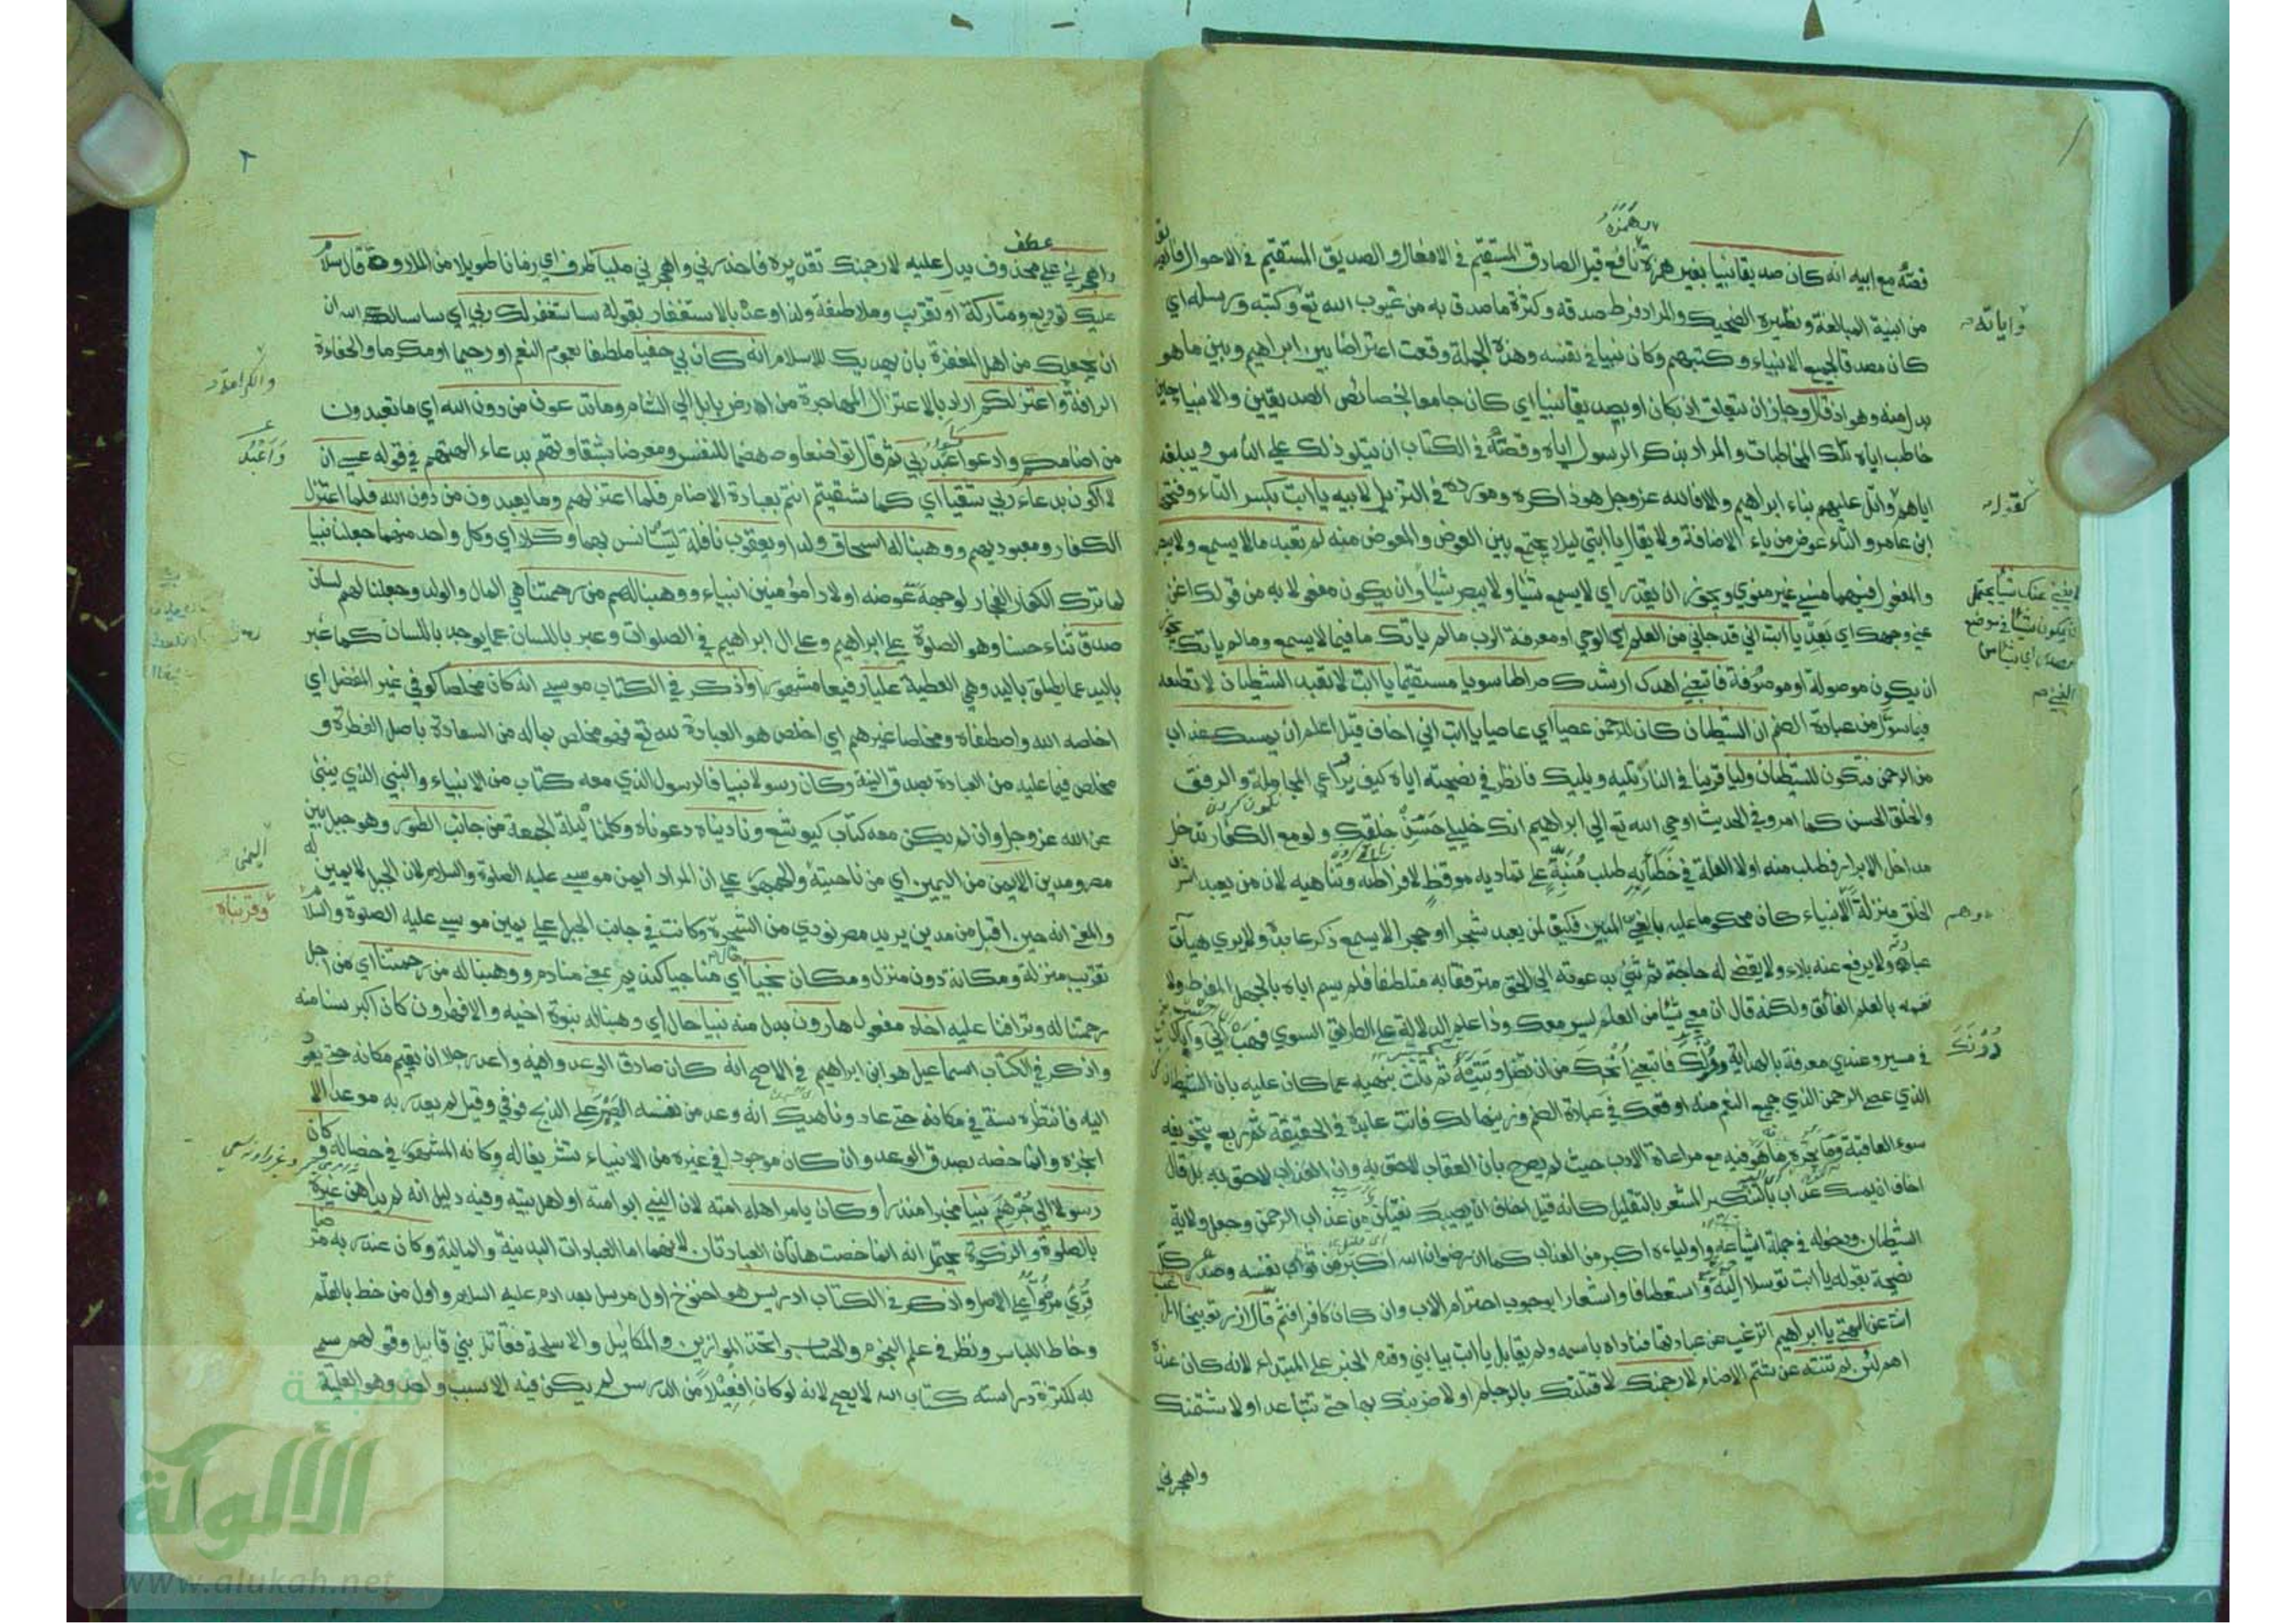 قصته مع ابيه انه كان صديقا نبيا بغير همزة نافع قيل الصادق المستقيم في الافعال والصديق المستقيم في الاحوال
من ابنية المبالغة ونظيره الضحيك والمراد فرط صدقه وكثرة ما صدق به من غيوب الله تع وكتبه ورسله اي
كان مصدقا لجميع الانبياء وكتبهم وكان نبيا في نفسه وهذه الجملة وقعت اعتراضا بين ابراهيم وبين ما هو
بدل منه وهو اذ قال وجاز ان يتعلق اذ بكان او بصديقا نبيا اي كان جامعا لخصائص الصديقين والانبياء حين
خاطب اياه تلك المخاطبات والمراد بذكر الرسول اياه وقصته في الكتاب ان يتلو ذلك على الناس ويبلغه
اياهم واتل عليهم نباء ابراهيم والا فالله عز وجل هو ذاكره ومورده في التنزيل لابيه يا ابت بكسر التاء وفتحها
ابن عامر والتاء عوض من ياء الاضافة ولا يقال يا ابتي ليلا يجتمع بين العوض والمعوض منه لم تعبد ما لا يسمع ولا يبصر
والمفعول فيهما منسي غير منوي ويجوز ان يقدر اي لا يسمع شيا ولا يبصر شيا وان يكون مفعولا به من قولك اغن
عني وجهك اي بعد يا ابت اني قد جاني من العلم اي الوحي او معرفة الرب ما لم ياتك ما فيما لا يسمع وما لم ياتك يجوز
ان يكون موصولة او موصوفة فاتبعني اهدك ارشدك صراطا سويا مستقيما يا ابت لا تعبد الشيطان لا تطعه
فيما سول من عبادة الصنم ان الشيطان كان للرحمن عصيا اي عاصيا يا ابت اني اخاف قيل اعلم ان يمسك عذاب
من الرحمن فتكون للشيطان وليا قرينا في النار تليه ويليك فانظر في نصيحته اياه كيف يراعي المجاملة والرفق
والخلق الحسن كما امر وفي الحديث اوحي الله تع الي ابراهيم انك خليلي حسن خلقك ولو مع الكفار تدخل
مداخل الابرار فطلب منه اولا العلة في خطائه طلب منبه على تماديه موقظ لافراطه وتناهيه لان من يعبد اشرف
الخلق منزلة الانبياء كان محكوما عليه بالغي المبين فكيف لمن يعبد شجرا او حجرا لا يسمع ذكر عابده ولا يري هيآت
عبادته ولا يرفع عنه بلاء ولا يقضي له حاجة ثم ثني بدعوته الي الحق مترفقا به متلطفا فلم يسم اياه بالجهل المفرط ولا
نفسه بالعلم الفائق ولكنه قال ان معي شيئا من العلم ليس معك وذا علم الدلالة على الطريق السوي فهب اني واياك
في مسير وعندي معرفة بالهداية دونك فاتبعني انجك من ان تضل وتتيه ثم ثلث بنهيه عما كان عليه بان الشيطان
الذي عصي الرحمن الذي جميع النعم منه اوقعك في عبادة الصنم وزينها لك فانت عابده في الحقيقة ثم ربع بتخويفه
سوء العاقبة وما يجره ما هو فيه مع مراعاة الادب حيث لم يصرح بان العقاب لاحق به وان العذاب لاحق به بل قال
اخاف ان يمسك عذاب بالتنكير المشعر بالتقليل كانه قيل اخاف ان يصيبك نفيان من عذاب الرحمن وجعل ولاية
الشيطان ودخوله في جملة اشياعه واولياءه اكبر من العذاب كما ان رضوان الله اكبر من ثواب نفسه وصدر كل
نصيحة بقوله يا ابت توسلا اليه واستعطافا واشعارا بوجوب احترام الاب وان كان كافرا فثم قال ازر توبيخا اراغب
انت عن الهتي يا ابراهيم اترغب عن عبادتها فناداه باسمه ولم يقابل يا ابت بيا بني وقدم الخبر على المبتداء لانه كان عنده
اهم لئن لم تنته عن شتم الاصنام لارجمنك لاقتلنك بالرجام او لاضربنك بها حتي تتباعد او لاشتمنك
واهجرني
واياته
كقوله
لا يغني عنك شيا يحتمل
ان يكون شيا في موضع
المصدر اي شيا من
الغني
دونك
٢
عطف
واهجرني على محذوف يدل عليه لارجمنك تقديره فاحذرني واهجرني مليا ظرف اي زمانا طويلا من الملاوة قال سلام
عليك توديع ومتاركة او تقريب وملاطفة ولذا وعده بالاستغفار بقوله ساستغفر لك ربي اي ساسال الله ان
يجعلك من اهل المغفرة بان يهديك للاسلام انه كان بي حفيا ملطفا بعموم النعم او رحيما او مكرما والحفاوة
الرافة واعتزلكم اراد بالاعتزال المهاجرة من ارض بابل الي الشام وما تدعون من دون الله اي ما تعبدون
من اصنامكم وادعوا اعبد ربي ثم قال تواضعا وهضما للنفس ومعرضا بشقاوتهم بدعاء الهتهم في قوله عسي ان
لا اكون بدعاء ربي شقيا اي كما شقيتم انتم بعبادة الاصنام فلما اعتزلهم وما يعبدون من دون الله فلما اعتزل
الكفار ومعبوديهم ووهبنا له اسحاق ولدا ويعقوب نافلة ليستانس بهما وكلا اي وكل واحد منهما جعلنا نبيا
لما ترك الكفار الفجار لوجهه عوضه اولادا مؤمنين انبياء ووهبنا لهم من رحمتنا هي المال والولد وجعلنا لهم لسان
صدق ثناء حسنا وهو الصلوة على ابراهيم وعلى ال ابراهيم في الصلوات وعبر باللسان عما يوجد باللسان كما عبر
باليد عما يطلق باليد وهي العطية عليا رفيعا مشهورا واذكر في الكتاب موسي انه كان مخلصا كوفي غير المفضل اي
اخلصه الله واصطفاه ومخلصا غيرهم اي اخلص هو العبادة لله تع فهو مخلص بما له من السعادة باصل الفطرة و
مخلص فيما عليه من العبادة بصدق النية وكان رسولا نبيا فالرسول الذي معه كتاب من الانبياء والنبي الذي ينبئ
عن الله عز وجل وان لم يكن معه كتاب كيوشع وناديناه دعوناه وكلمنا ليلة الجمعة من جانب الطور وهو جبل بين
مصر ومدين الايمن من اليمين اي من ناحيته والجمهور علي ان المراد ايمن موسي عليه الصلوة والسلام لان الجبل لا يمين له
والمعنى انه حين اقبل من مدين يريد مصر نودي من الشجرة وكانت في جانب الجبل علي يمين موسي عليه الصلوة والسلام
تقريب منزلة ومكانة دون منزل ومكان نجيا اي مناجيا كنديم بمعني منادم ووهبنا له من رحمتنا اي من اجل
رحمتنا له وترافنا عليه اخاه مفعول هارون بدل منه نبيا حال اي وهبنا له نبوة اخيه والا فهرون كان اكبر سنا منه
واذكر في الكتاب اسماعيل هو ابن ابراهيم في الاصح انه كان صادق الوعد وافيه واعد رجلا ان يقيم مكانه حتي يعود
اليه فانتظره سنة في مكانه حتي عاد وناهيك انه وعد من نفسه الصبر على الذبح فوفي وقيل لم يعد ربه موعدا الا
انجزه وانما خصه بصدق الوعد وان كان موجودا في غيره من الانبياء تشريفا له وكانه المشهور في خصاله وكان
رسولا الي جرهم نبيا مخبرا منذرا وكان يامر اهله امته لان النبي ابو امته او اهل بيته وفيه دليل انه لم يداهن غيره
بالصلوة والزكوة يحتمل انه انما خصت هاتان العبادتان لانهما اما العبادات البدنية والمالية وكان عند ربه مرضيا
قرئ مرضوا على الاصل واذكر في الكتاب ادريس هو اخنوخ اول مرسل بعد ادم عليه السلام واول من خط بالقلم
وخاط اللباس ونظر في علم النجوم والحساب واتخذ الموازين والمكائيل والاسلحة فقاتل بني قابيل وقولهم سمي
به لكثرة دراسته كتاب الله لا يصح لانه لو كان افعيلا من الدرس لم يكن فيه الا سبب واحد وهو العلمية
والكرامة
واعبد
اليمني
وقربناه
شبكة
الألوكة
www.alukah.net